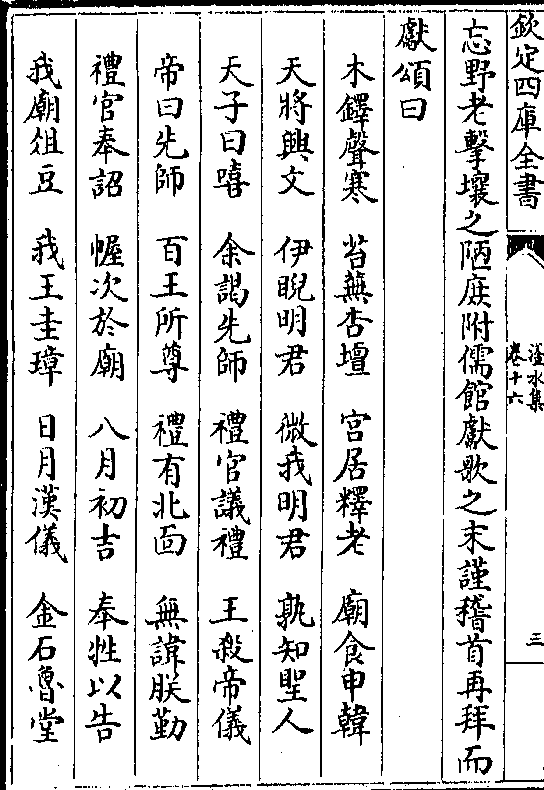 欽定四庫全書
滏水集
卷十六
三
忘野老擊壤之陋庶附儒館獻歌之末謹稽首再拜而
獻頌曰
木鐸聲寒 苔蕪杏壇 宮居釋老 廟食申韓
天將興文 伊睨明君 微我明君 孰知聖人
天子曰嘻 余謁先師 禮官議禮 王殺帝儀
帝曰先師 百王所尊 禮有北面 無諱朕勤
禮官奉詔 幄次於廟 八月初吉 奉牲以告
我廟俎豆 我王圭璋 日月漢儀 金石魯堂